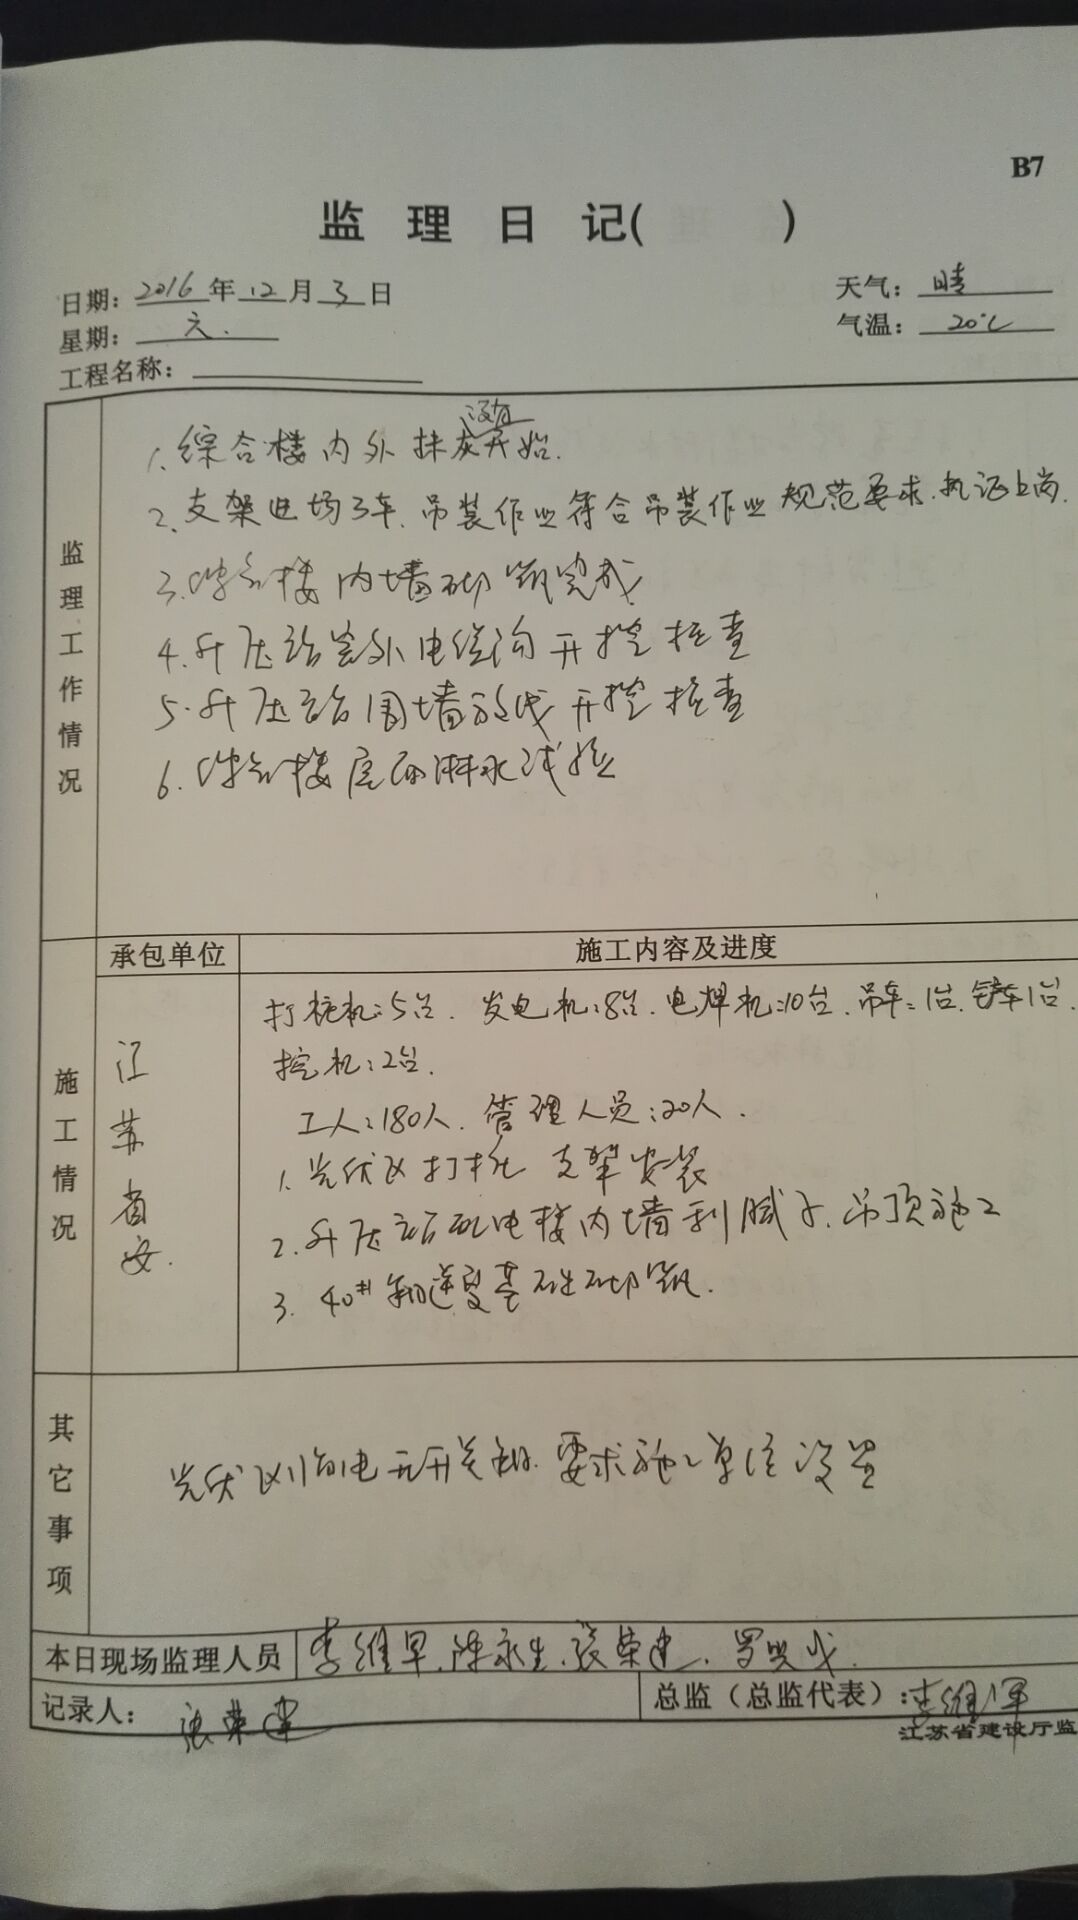 B7
监 理 日 记(      )
日期: 2016 年 12 月 3 日
天气: 晴
星期: 六.
气温: 20℃
工程名称:
监理工作情况
没有
1. 综合楼内外抹灰开始.
2. 支架进场3车. 吊装作业符合吊装作业规范要求. 执证上岗.
3. 综合楼内墙砌筑完成
4. 升压站室外电缆沟开挖检查
5. 升压站围墙放线开挖检查
6. 综合楼屋面淋水试验
施工情况
承包单位
施工内容及进度
江苏省安.
打桩机:5台. 发电机:8台. 电焊机:10台. 吊车:1台. 铲车1台.
挖机:2台.
工人:180人. 管理人员:20人.
1. 光伏区打桩 支架安装
2. 升压站配电楼内墙刮腻子. 吊顶施工
3. 40# 逆变基础砌筑.
其它事项
光伏区临电无开关箱. 要求施工单位设置
本日现场监理人员 李维军. 陈永生. 张荣建.
记录人: 张荣建
总监（总监代表）: 李维军
江苏省建设厅监